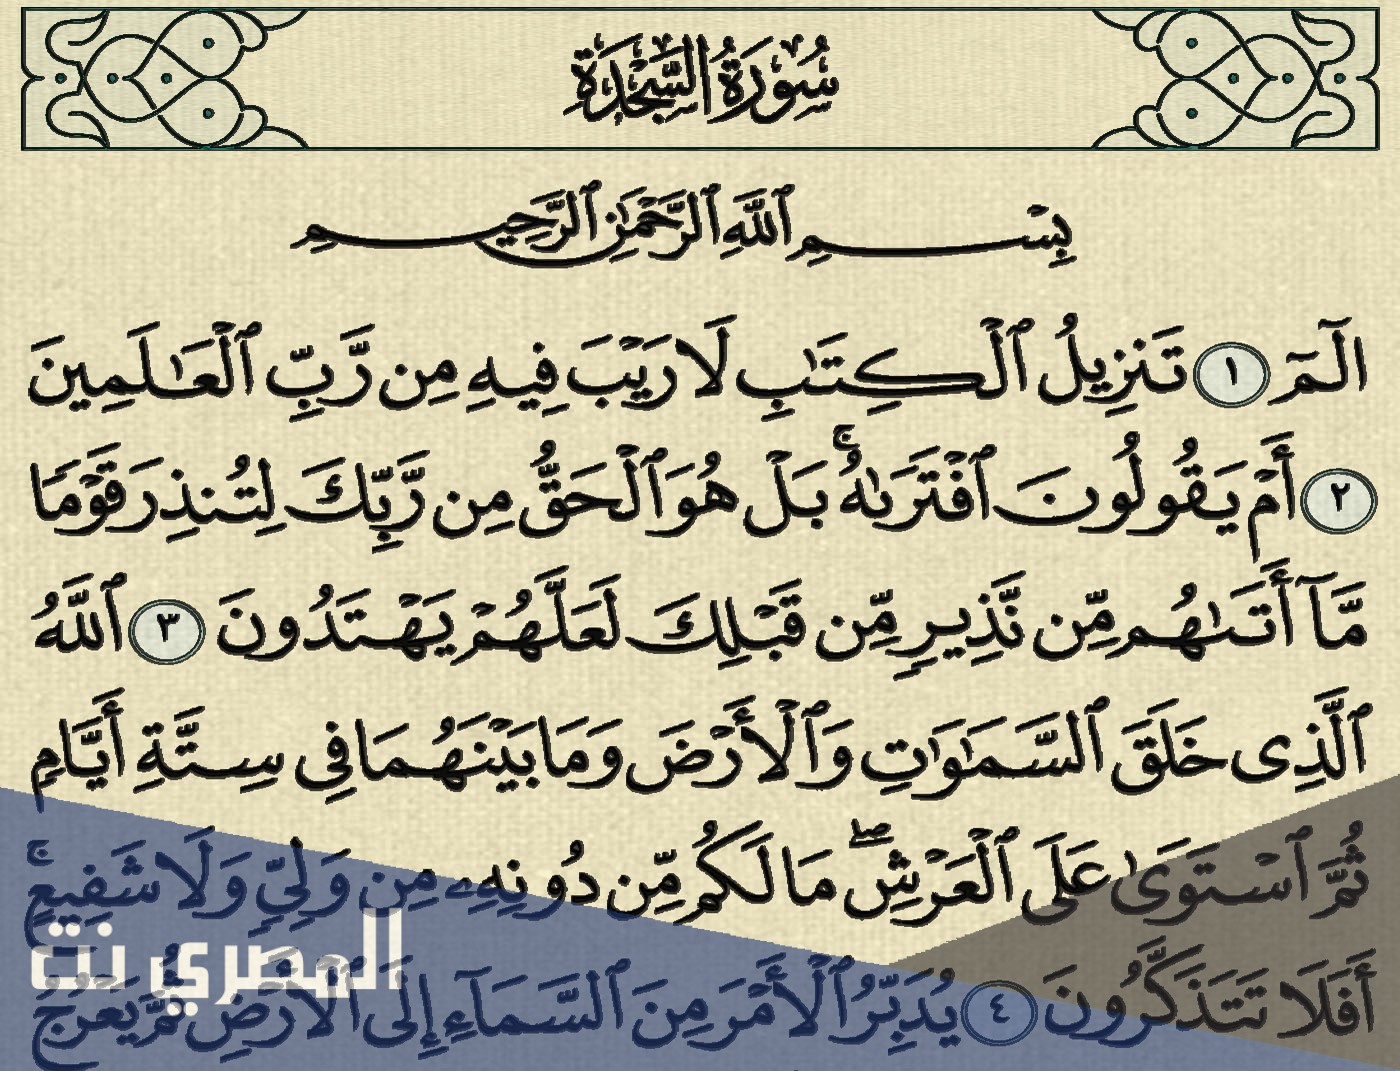 سُورَةُ السَّجْدَةِ
بِسْمِ ٱللَّهِ ٱلرَّحْمَٰنِ ٱلرَّحِيمِ
الٓمٓ ١ تَنزِيلُ ٱلْكِتَٰبِ لَا رَيْبَ فِيهِ مِن رَّبِّ ٱلْعَٰلَمِينَ
٢ أَمْ يَقُولُونَ ٱفْتَرَىٰهُ ۚ بَلْ هُوَ ٱلْحَقُّ مِن رَّبِّكَ لِتُنذِرَ قَوْمًا
مَّآ أَتَىٰهُم مِّن نَّذِيرٍ مِّن قَبْلِكَ لَعَلَّهُمْ يَهْتَدُونَ ٣ ٱللَّهُ
ٱلَّذِى خَلَقَ ٱلسَّمَٰوَٰتِ وَٱلْأَرْضَ وَمَا بَيْنَهُمَا فِى سِتَّةِ أَيَّامٍ
ثُمَّ ٱسْتَوَىٰ عَلَى ٱلْعَرْشِ ۖ مَا لَكُم مِّن دُونِهِۦ مِن وَلِىٍّ وَلَا شَفِيعٍ ۚ
أَفَلَا تَتَذَكَّرُونَ ٤ يُدَبِّرُ ٱلْأَمْرَ مِنَ ٱلسَّمَآءِ إِلَى ٱلْأَرْضِ ثُمَّ يَعْرُجُ
المصري نت